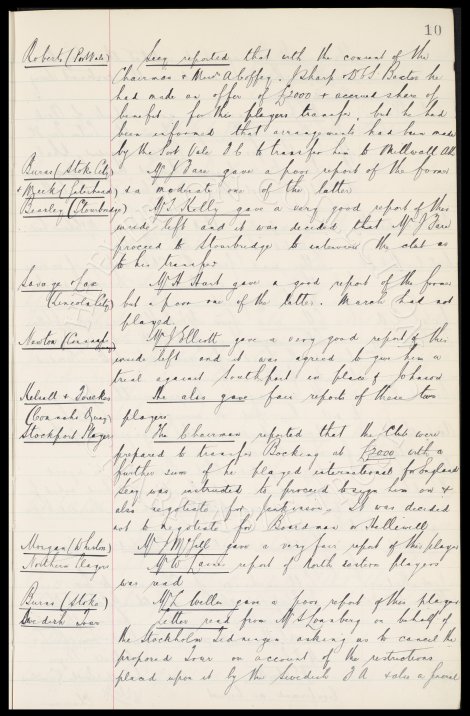 10
Roberts (Port Vale) Secy reported that with the consent of the
Chairman & Messrs A Coffey, J Sharp & D S Baxter he
had made an offer of £2000 + accrued share of
benefit for this players transfer, but he had
been informed that arrangements had been made
by the Port Vale F C to transfer him to Millwall Ath
Burns (Stoke City) Mr J Fare gave a poor report of the former
(Gateshead) & a moderate one of the latter
(Stourbridge) Mr L Kelly gave a very good report of this
inside left and it was decided that Mr J Fare
proceed to Stourbridge to interview the club as
to his transfer
Savage Mr H Hart gave a good report of the former
(Lincoln City) but a poor one of the latter. Marsh had not
played
Newton Mr J Elliott gave a very good report of this
inside left and it was agreed to give him a
trial against Southport in place of Johnson
He also gave fair reports of those two
(Connahs Quay) players
Stockport Players The Chairman reported that the Club were
prepared to transfer Bocking at £2000 with a
further sum if he played international for England
Secy was instructed to proceed to sign him on &
also negotiate for Jenkinson. It was decided
not to negotiate for Boardman or Hallewell
Morgan (Whiston) gave a very fair report of this player
Northern Players Mr W report of North Eastern players
was read
Burns (Stoke) gave a poor report of this player
Swedish Tour Letter read from Mr S on behalf of
the Stockholm asking us to cancel the
proposed Tour on account of the restrictions
placed upon it by the Swedish F A & also a general